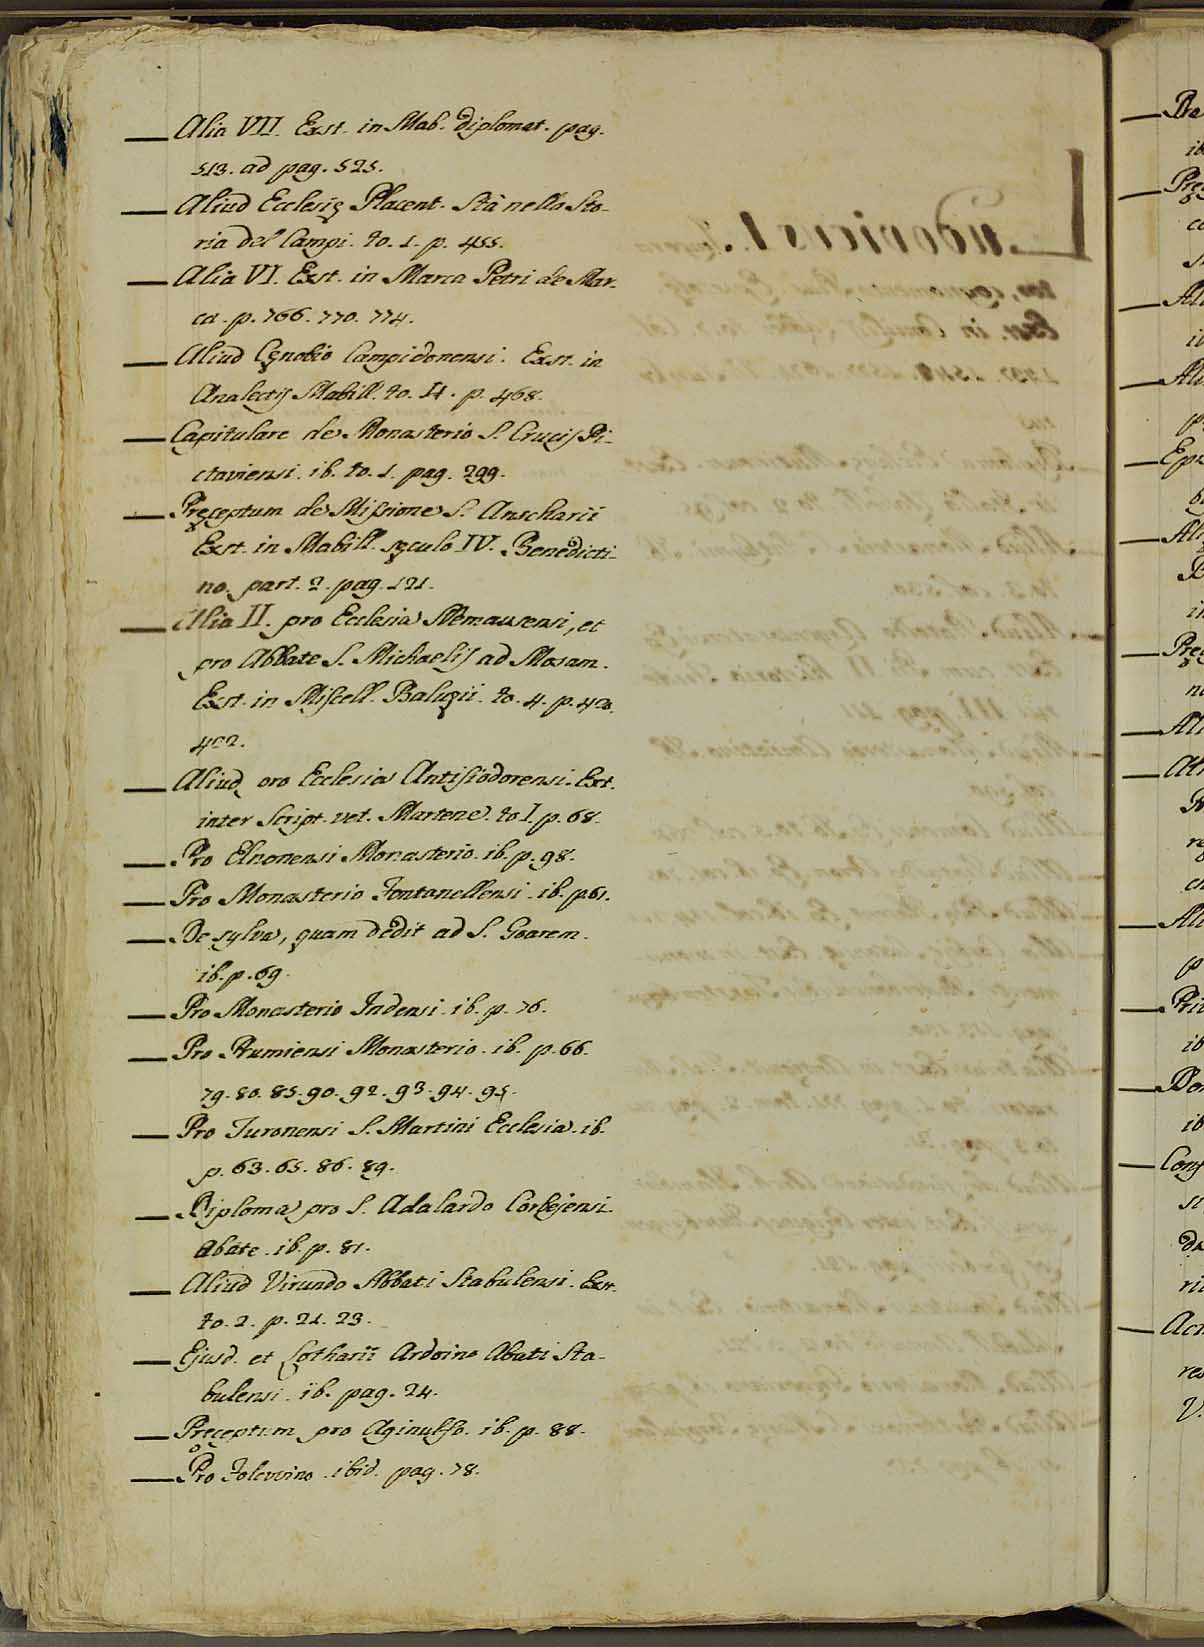 — Alia VII. Exst. in Mab. diplomat. pag.
513. ad pag. 525.
— Aliud Ecclesię Placent. Stà nella Sto-
ria del Campi. to. 1. p. 455.
— Alia VI. Exst. in Marca Petri de Mar-
ca. p. 766. 770. 774.
— Aliud Cęnobio Campidonensi. Exst. in
Analectis Mabill. to. II. p. 468.
— Capitulare de Monasterio S. Crucis Pi-
ctaviensi. ib. to. 1. pag. 299.
— Pręceptum de Missione S. Anscharii
Exst. in Mabill. sęculo IV. Benedicti-
no. part. 2. pag. 121.
— Alia II. pro Ecclesia Nemausensi, et
pro Abbate S. Michaelis ad Mosam.
Exst. in Miscell. Baluzii. to. 4. p. 420.
422.
— Aliud pro Ecclesia Antisiodorensi. Ext.
inter Script. vet. Martene. to I. p. 68.
— Pro Elnonensi Monasterio. ib. p. 98.
— Pro Monasterio Fontanellensi. ib. p. 61.
— De sylva, quam dedit ad S. Goarem.
ib. p. 69.
— Pro Monasterio Indensi. ib. p. 76.
— Pro Prumiensi Monasterio. ib. p. 66.
79. 80. 85. 90. 92. 93. 94. 95.
— Pro Turonensi S. Martini Ecclesia. ib.
p. 63. 65. 86. 89.
— Diploma pro S. Adalardo Corbejensi
Abate. ib. p. 81.
— Aliud Virundo Abbati Stabulensi. Exst.
to. 2. p. 21. 23.
— Ejusd. et Lotharii Ardoino Abati Sta-
bulensi. ib. pag. 24.
— Pręceptum pro Aginulfo. ib. p. 88.
— Pro Folcwino. ibid. pag. 78.